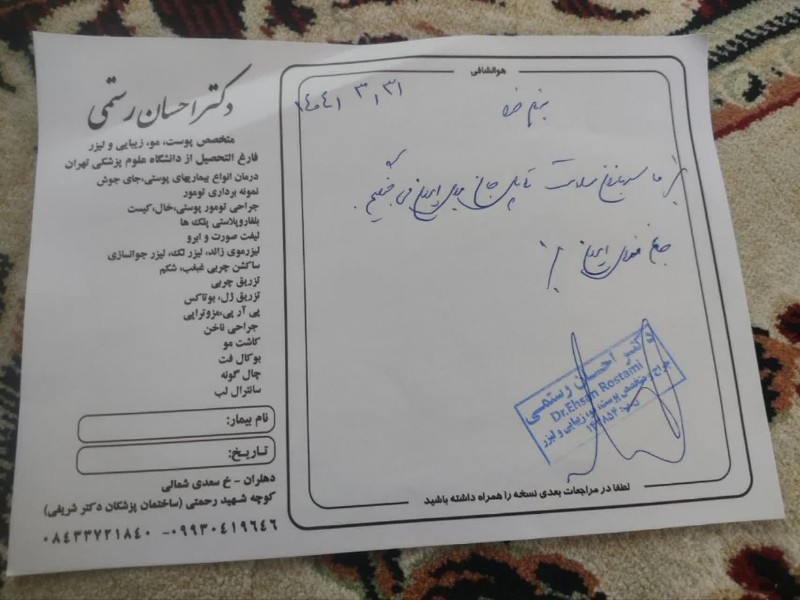 دکتر احسان رستمی
متخصص پوست، مو، زیبایی و لیزر
فارغ التحصیل از دانشگاه علوم پزشکی تهران
درمان انواع بیماریهای پوستی،جای جوش
نمونه برداری تومور
جراحی تومور پوستی،خال،کیست
بلفاروپلاستی پلک ها
لیفت صورت و ابرو
لیزرموی زائد، لیزر لک، لیزر جوانسازی
ساکشن چربی غبغب، شکم
تزریق چربی
تزریق ژل، بوتاکس
پی آر پی،مزوتراپی
جراحی ناخن
کاشت مو
بوکال فت
چال گونه
سانترال لب
نام بیمار:
تاریخ:
دهلران - خ سعدی شمالی
کوچه شهید رحمتی (ساختمان پزشکان دکتر شریفی)
۰۸۴۳۳۷۲۱۸۴۰ -۰۹۹۳۰۴۱۹۶۴۶
هوالشافی
۱۴۰۴/۳/۳۱
بنام خدا
ما سربازان سلامت تا پای جان برای ایران می جنگیم.
جانم فدای ایران
دکتر احسان رستمی
Dr.Ehsan Rostami
جراح و متخصص پوست، مو، زیبایی و لیزر
لطفا در مراجعات بعدی نسخه را همراه داشته باشید